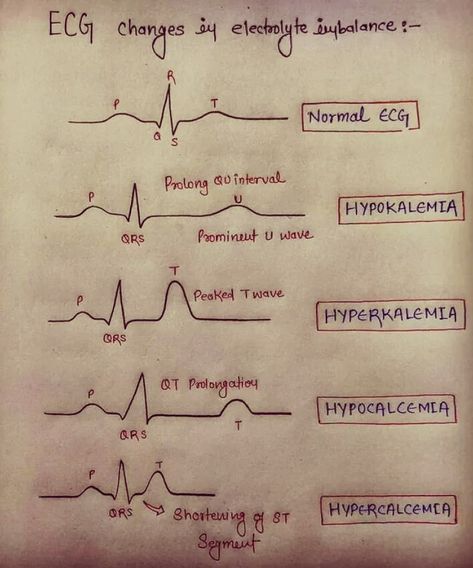 ECG changes in electrolyte imbalance :-
R
P
T
Q
S
Normal ECG
Prolong QU interval
P
U
HYPOKALEMIA
QRS
Prominent U wave
T
P
Peaked T wave
HYPERKALEMIA
QRS
QT Prolongation
P
HYPOCALCEMIA
QRS
T
P
T
QRS
Shortening of ST
Segment
HYPERCALCEMIA